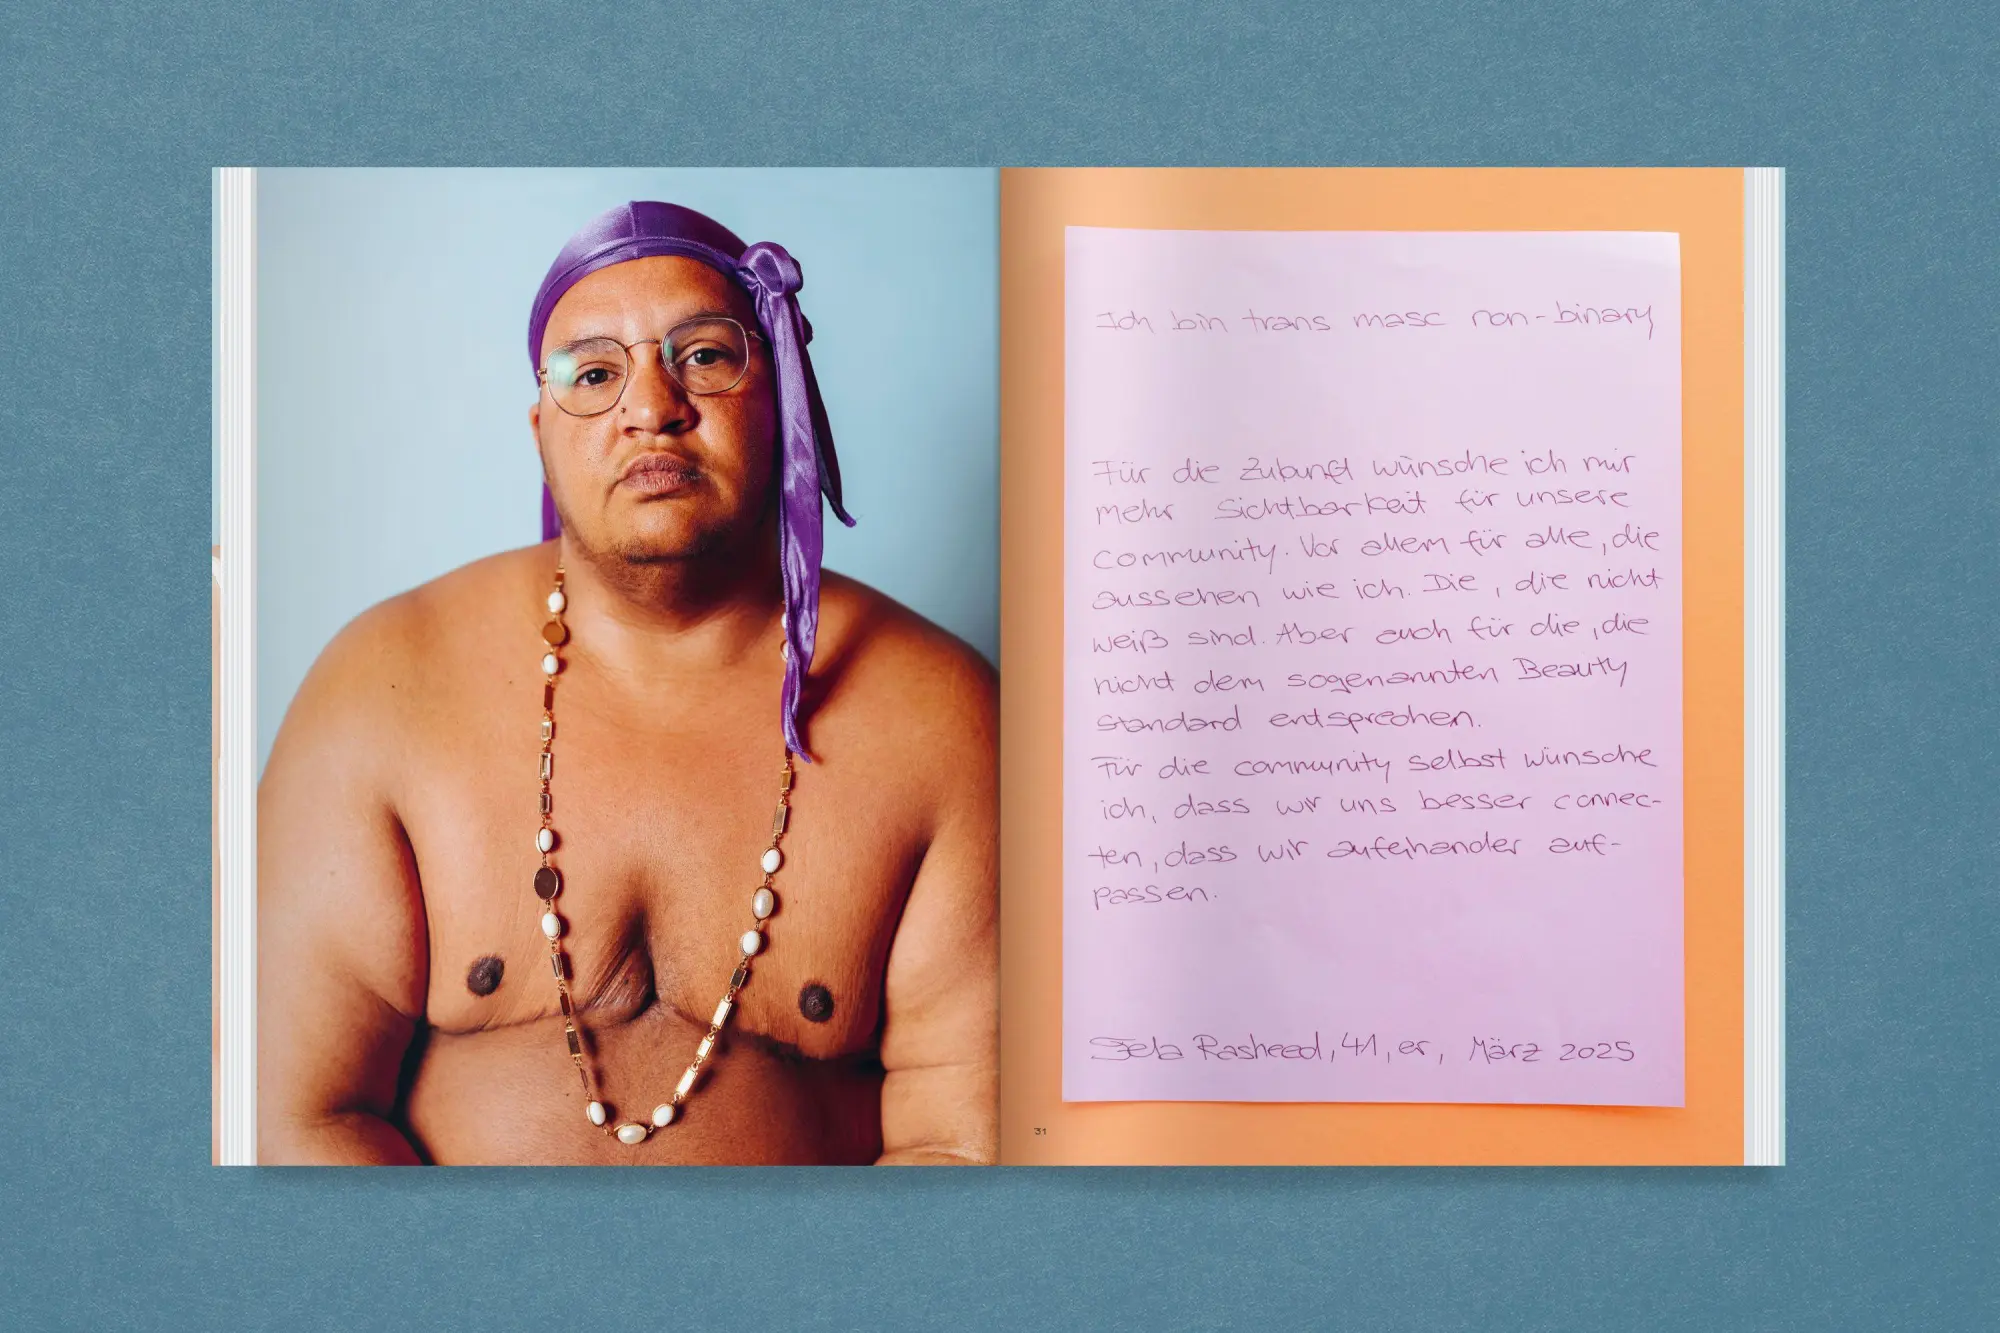 Ich bin trans masc non-binary
Für die Zukunft wünsche ich mir
mehr Sichtbarkeit für unsere
community. Vor allem für alle, die
aussehen wie ich. Die, die nicht
weiß sind. Aber auch für die, die
nicht dem sogenannten Beauty
standard entsprechen.
Für die community selbst wünsche
ich, dass wir uns besser connec-
ten, dass wir aufeinander auf-
passen.
Rasheed, 41, er, März 2025
31